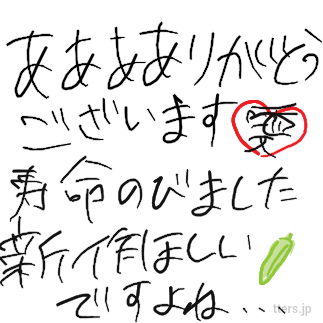 あああありがとう
ございます
寿命のびました
新作ほしい
ですよね...
tiers.jp